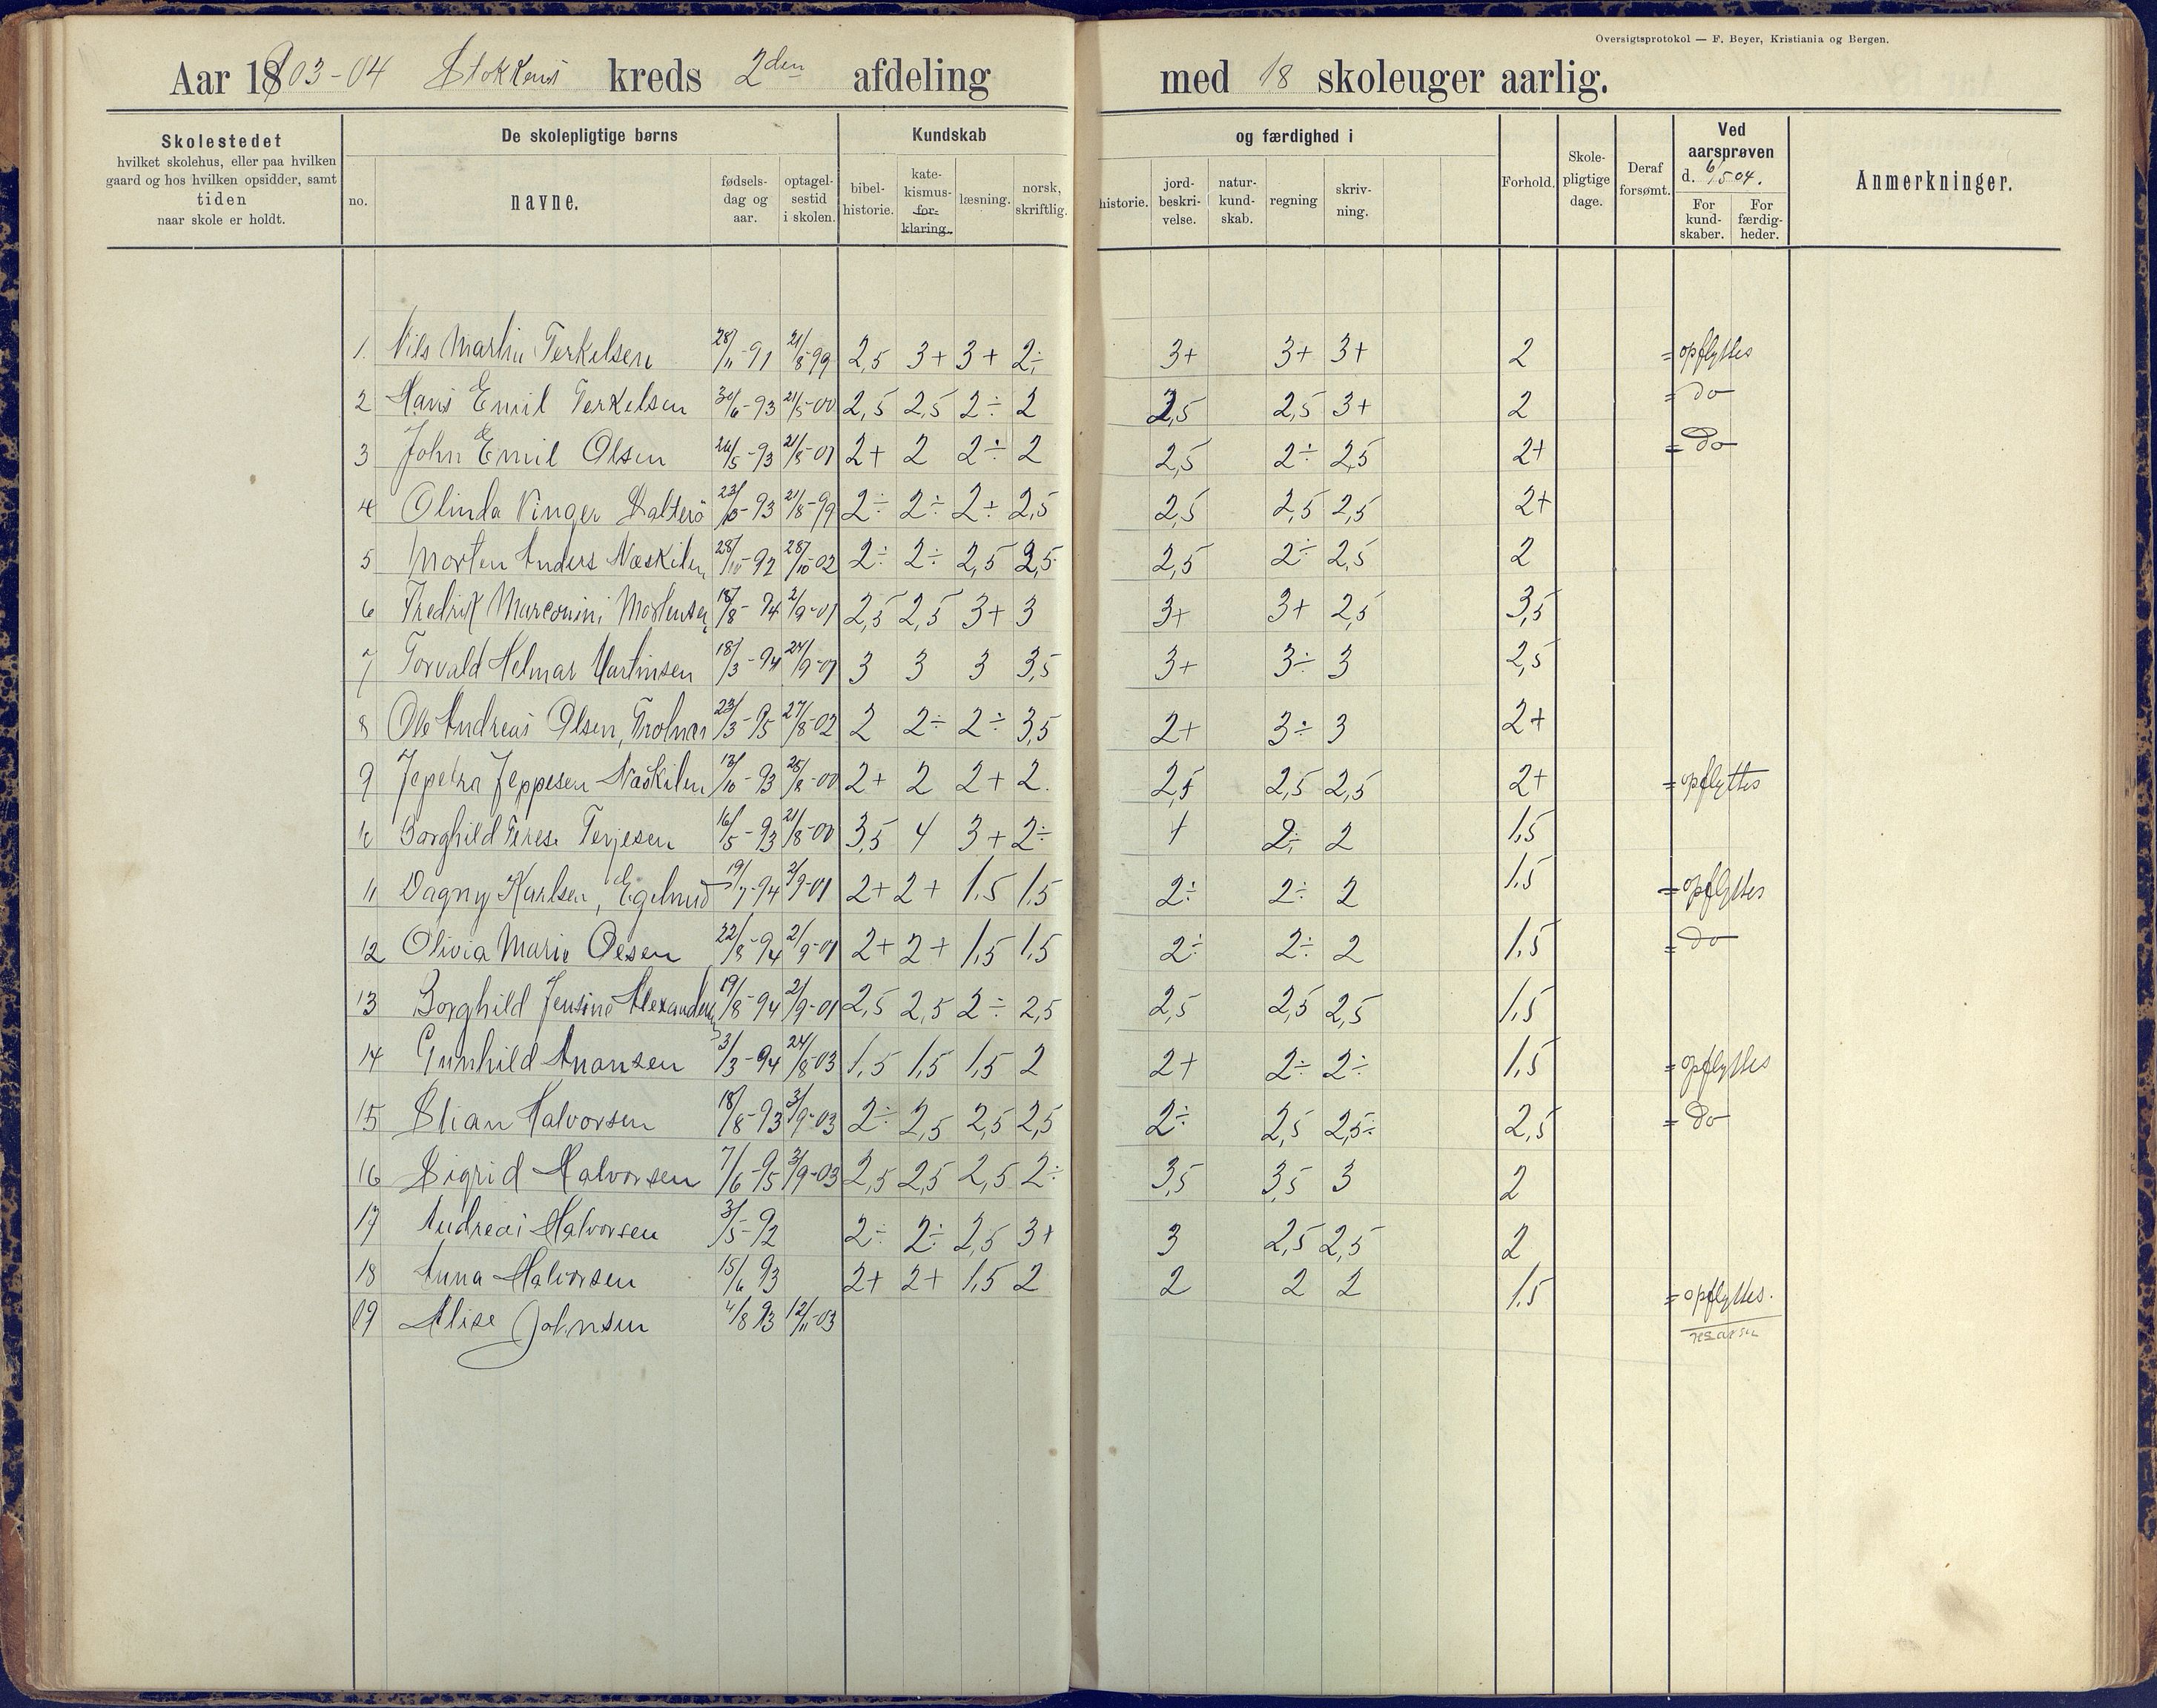 Oversigtsprotokol — F. Beyer, Kristiania og Bergen.
Aar 1903-04 Stokken's kreds 2den afdeling med 18 skoleuger aarlig.
Skolestedet
hvilket skolehus, eller paa hvilken
gaard og hos hvilken opsidder, samt
tiden
naar skole er holdt.
De skolepligtige børns
no.
navne.
fødsels-
dag og
aar.
optagel-
sestid
i skolen.
Kundskab
bibel-
historie.
kate-
kismus-
for-
klaring.
læsning.
norsk,
skriftlig.
og færdighed i
historie.
jord-
beskri-
velse.
natur-
kund-
skab.
regning
skriv-
ning.
Forhold.
Skole-
pligtige
dage.
Deraf
forsømt.
Ved
aarsprøven
d. 6/5 04.
For
kund-
skaber.
For
færdig-
heder.
Anmerkninger.
1. Nils Martin Terkelsen 28/11-91 21/8-99 2,5 3+ 3+ 2÷ 3+ 3+ 3+ 2 = opflyttes
2 Hans Emil Terkelsen 30/6-93 21/5-00 2,5 2,5 2÷ 2 2,5 2,5 3+ 2 = do
3 John Emil Olsen 26/5-93 21/8-01 2+ 2 2÷ 2 2,5 2÷ 2,5 2+ = do
4 Olinda Vinger Salterö 23/10-93 21/8-99 2÷ 2÷ 2+ 2,5 2,5 2,5 2,5 2+
5 Morten Anders Næskilen 28/10-92 28/10-02 2÷ 2÷ 2,5 2,5 2,5 2÷ 2,5 2
6 Fredrik Marconini Mortensen 18/8-94 2/9-01 2,5 2,5 3+ 3 3+ 3+ 2,5 3,5
7 Torvald Helmar Martinsen 18/3-94 24/9-01 3 3 3 3,5 3+ 3÷ 3 2,5
8 Ole Andreas Olsen, 23/3-95 27/8-02 2 2÷ 2÷ 3,5 2+ 3÷ 3 2+
9 Jepetra Jeppesen Næskilen 13/10-93 25/8-00 2+ 2 2+ 2. 2,5 2,5 2,5 2+ = opflyttes
10 Borghild Terese Terjesen 16/5-93 21/8-00 3,5 4 3+ 2÷ 2÷ 2 1,5
11 Dagny Karlsen, 19/7-94 2/9-01 2+ 2+ 1,5 1,5 2÷ 2÷ 2 1,5 = opflyttes
12 Olivia Marie Olsen 22/8-94 2/9-01 2+ 2+ 1,5 1,5 2÷ 2÷ 2 1,5 = do
13 Borghild Jensine Alexandersen 19/8-94 2/9-01 2,5 2,5 2÷ 2,5 2,5 2,5 2,5 1,5
14 Gunhild Anansen 3/3-94 24/8-03 1,5 1,5 1,5 2 2+ 2÷ 2÷ 1,5 = opflyttes
15 Stian Halvorsen 18/8-93 3/9-03 2÷ 2,5 2,5 2,5 2÷ 2,5 2,5÷ 2,5 = do
16 Sigrid Halvorsen 7/6-95 3/9-03 2,5 2,5 2,5 2÷ 3,5 3,5 3 2
17 Andreas Halvorsen 3/5-92 2÷ 2÷ 2,5 3+ 3 2,5 2,5 2
18 Anna Halvorsen 15/6 93 2+ 2+ 1,5 2 2 2 2 1,5 = opflyttes.
19 Alise Johnsen 4/8 93 12/11-03